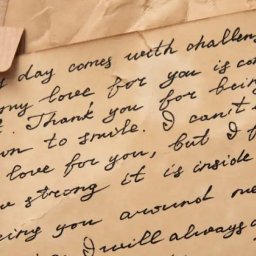 day comes with challen
my love for you is con
Thank you for being
to smile. I can't
love for you, but I f
strong it is inside
eing you around me
I will always